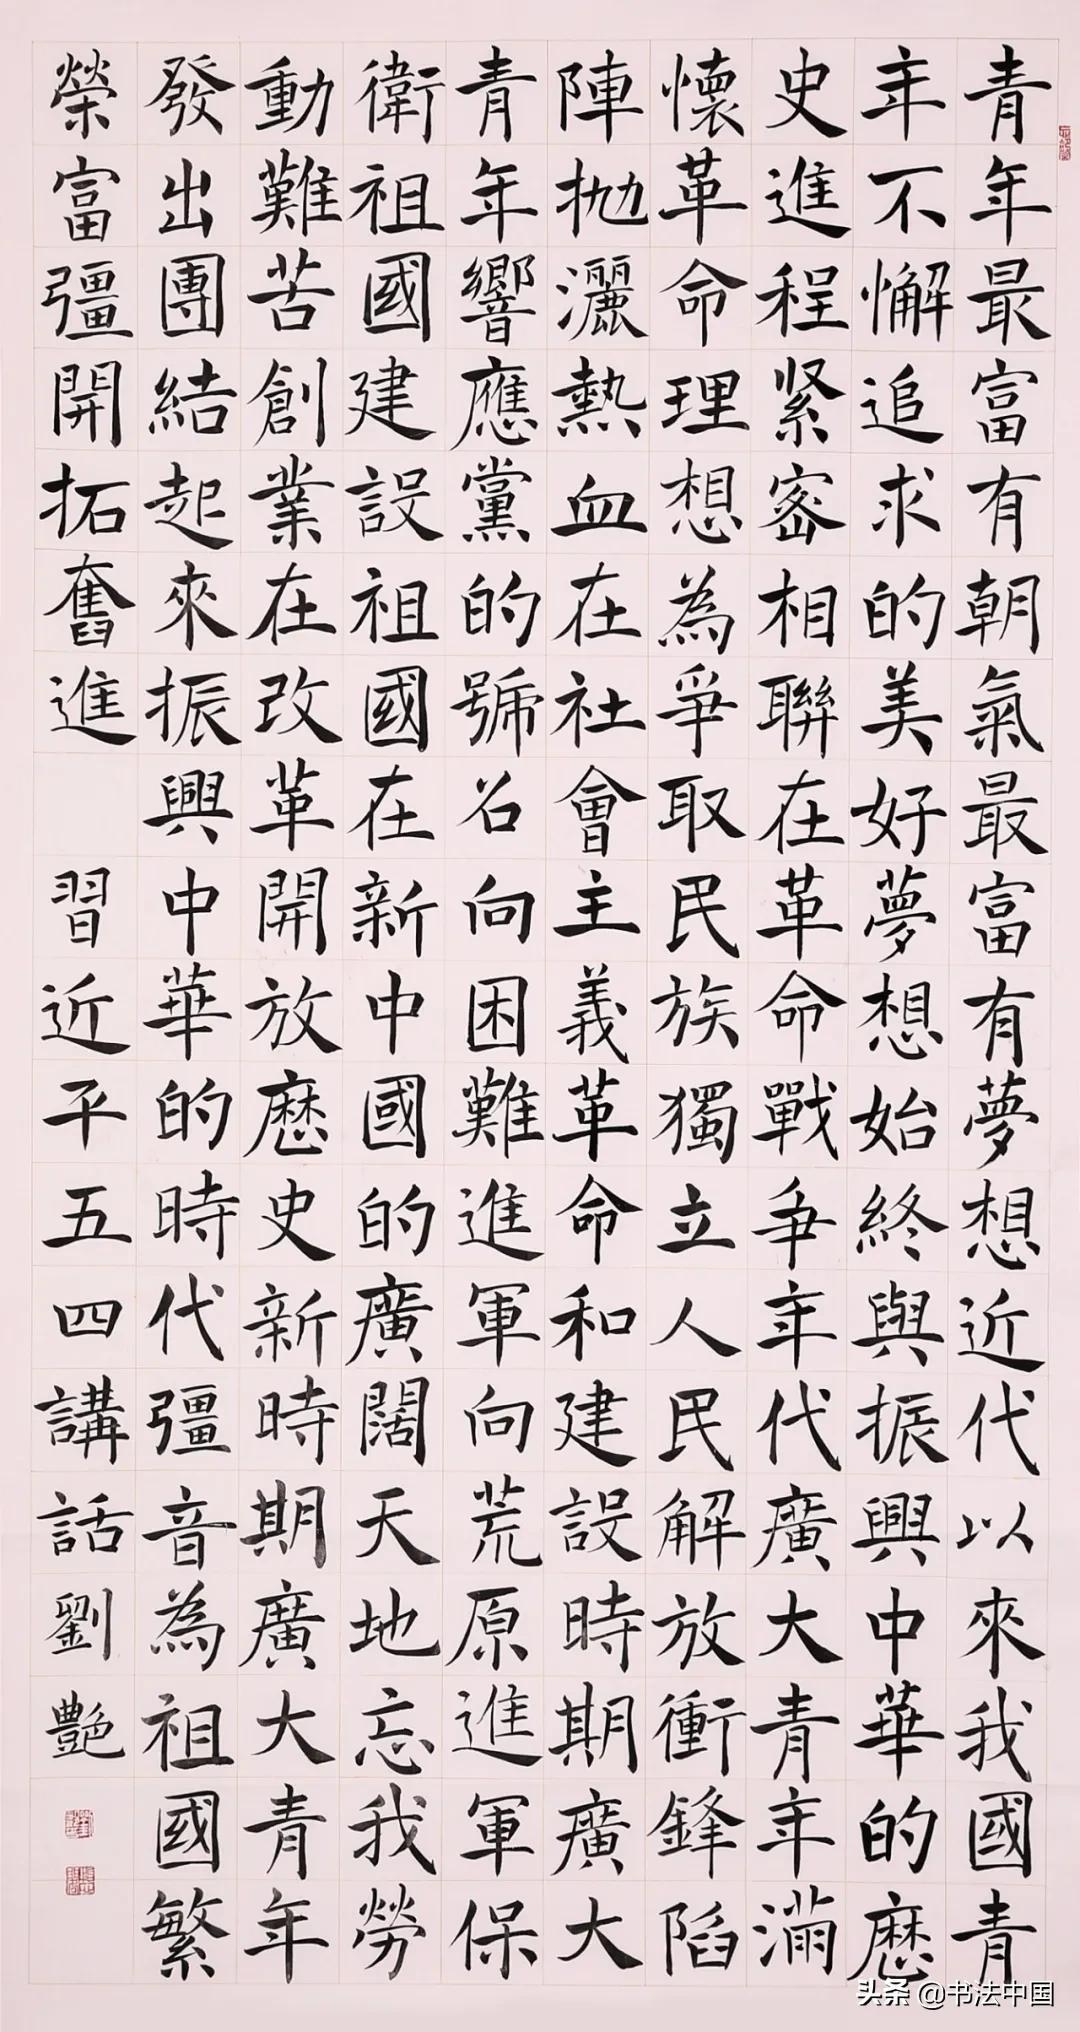 青年最富有朝氣最富有夢想近代以來我國青
年不懈追求的美好夢想始終與振興中華的歷
史進程緊密相聯在革命戰爭年代廣大青年滿
懷革命理想為爭取民族獨立人民解放衝鋒陷
陣拋灑熱血在社會主義革命和建設時期廣大
青年響應黨的號召向困難進軍向荒原進軍保
衛祖國建設祖國在新中國的廣闊天地忘我勞
動難苦創業在改革開放歷史新時期廣大青年
發出團結起來振興中華的時代彊音為祖國繁
榮富彊開拓奮進 習近平五四講話劉艷
头条 @书法中国